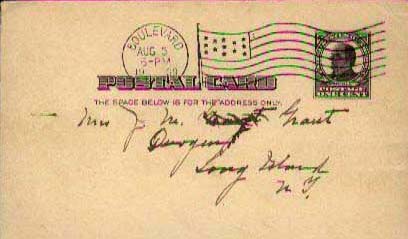 BOULEVARD
AUG 5
6-PM
POSTAL CARD
THE SPACE BELOW IS FOR THE ADDRESS ONLY.
POSTAGE
ONE CENT
Mrs J. M. Grant
Long Island
N Y